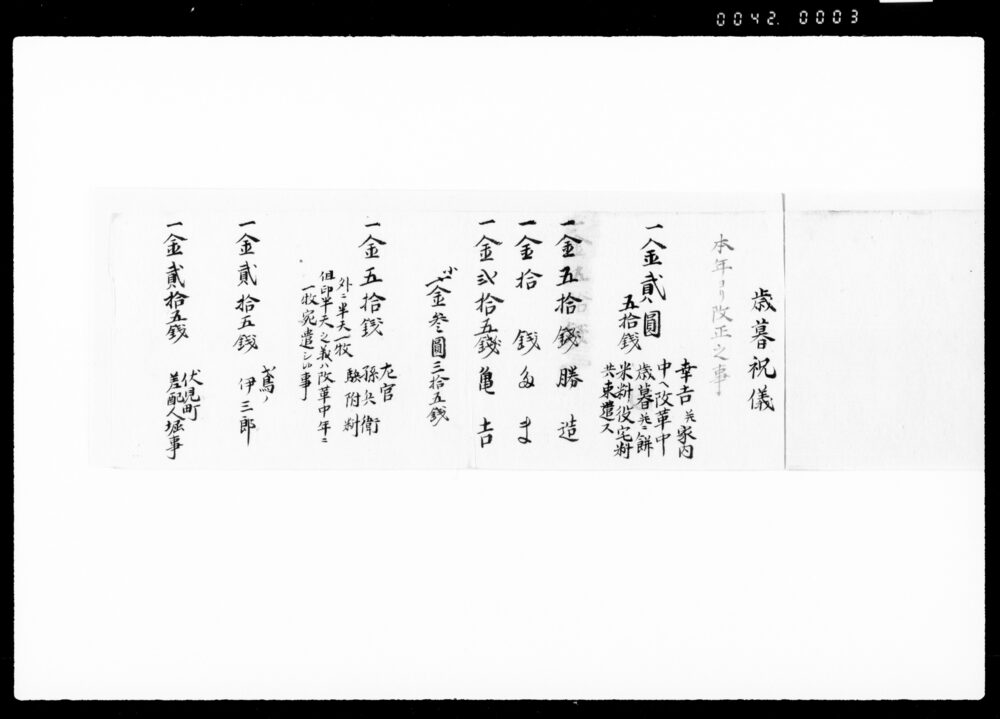 0042.0003
歳暮祝儀
本年ヨリ改正之事
一金貳圓
五拾銭
幸吉并家内
中ヘ改革中
歳暮并ニ餅
米料役宅料
共束遣ス
一金五拾銭 勝造
一金拾銭 多ま
一金弐拾五銭 亀吉
小〆金叄圓三拾五銭
一金五拾銭
左官
孫兵衛
駄附料
外ニ半天一枚
但印半天之義ハ改革中年ニ
一枚宛遣シ候事
一金貳拾五銭
鳶ノ
伊三郎
一金貳拾五銭
伏見町
差配人堀事